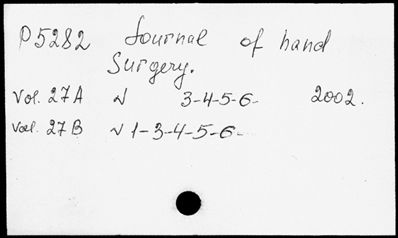 P5282 Journal of hand
Surgery.
Vol. 27A N 3-4-5-6- 2002.
Vol. 27B N 1-3-4-5-6-